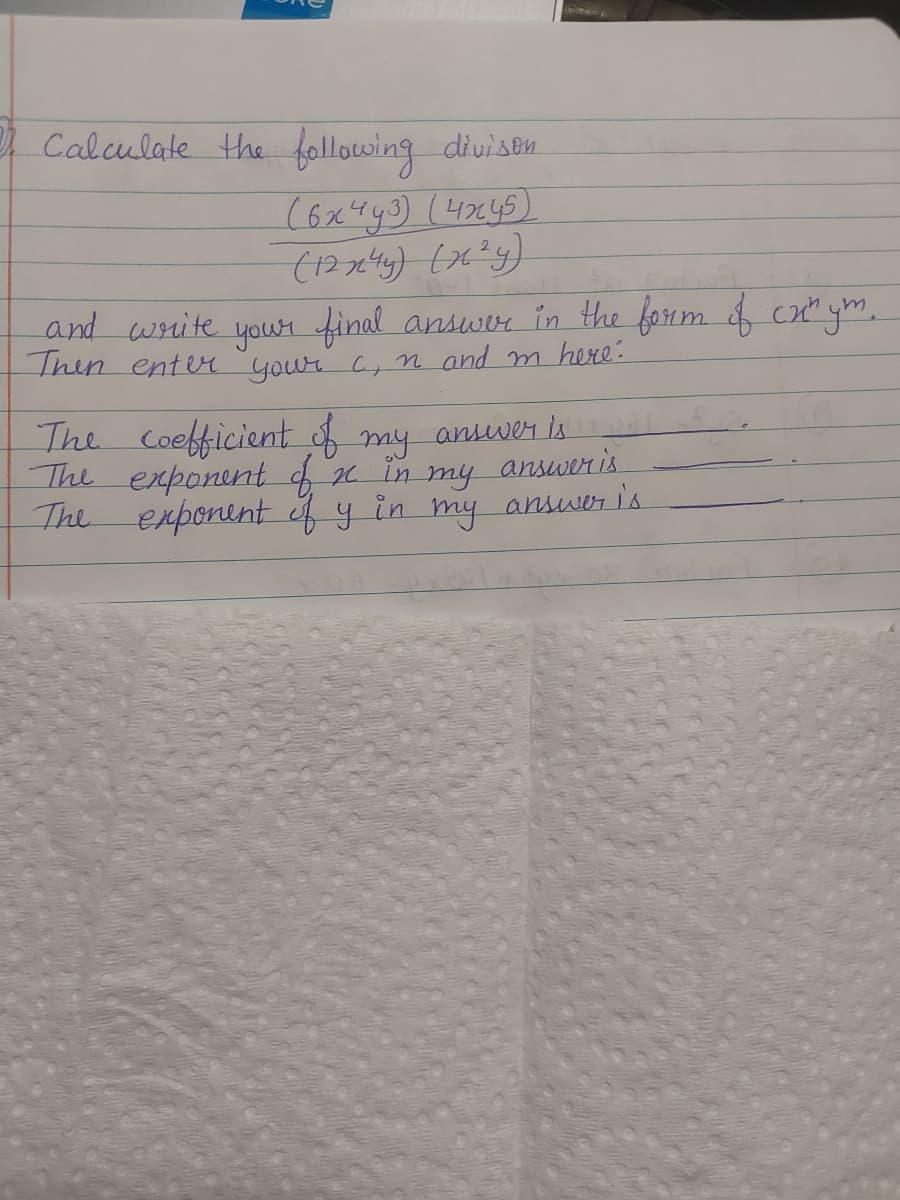 Calculate the following divison
(6x⁴y³) (4xy5)
(12x⁴y) (x²y)
and write your final answer in the form of cxⁿyᵐ.
Then enter your c, n and m here:
The coefficient of my answer is ______.
The exponent of x in my answer is ______.
The exponent of y in my answer is ______.